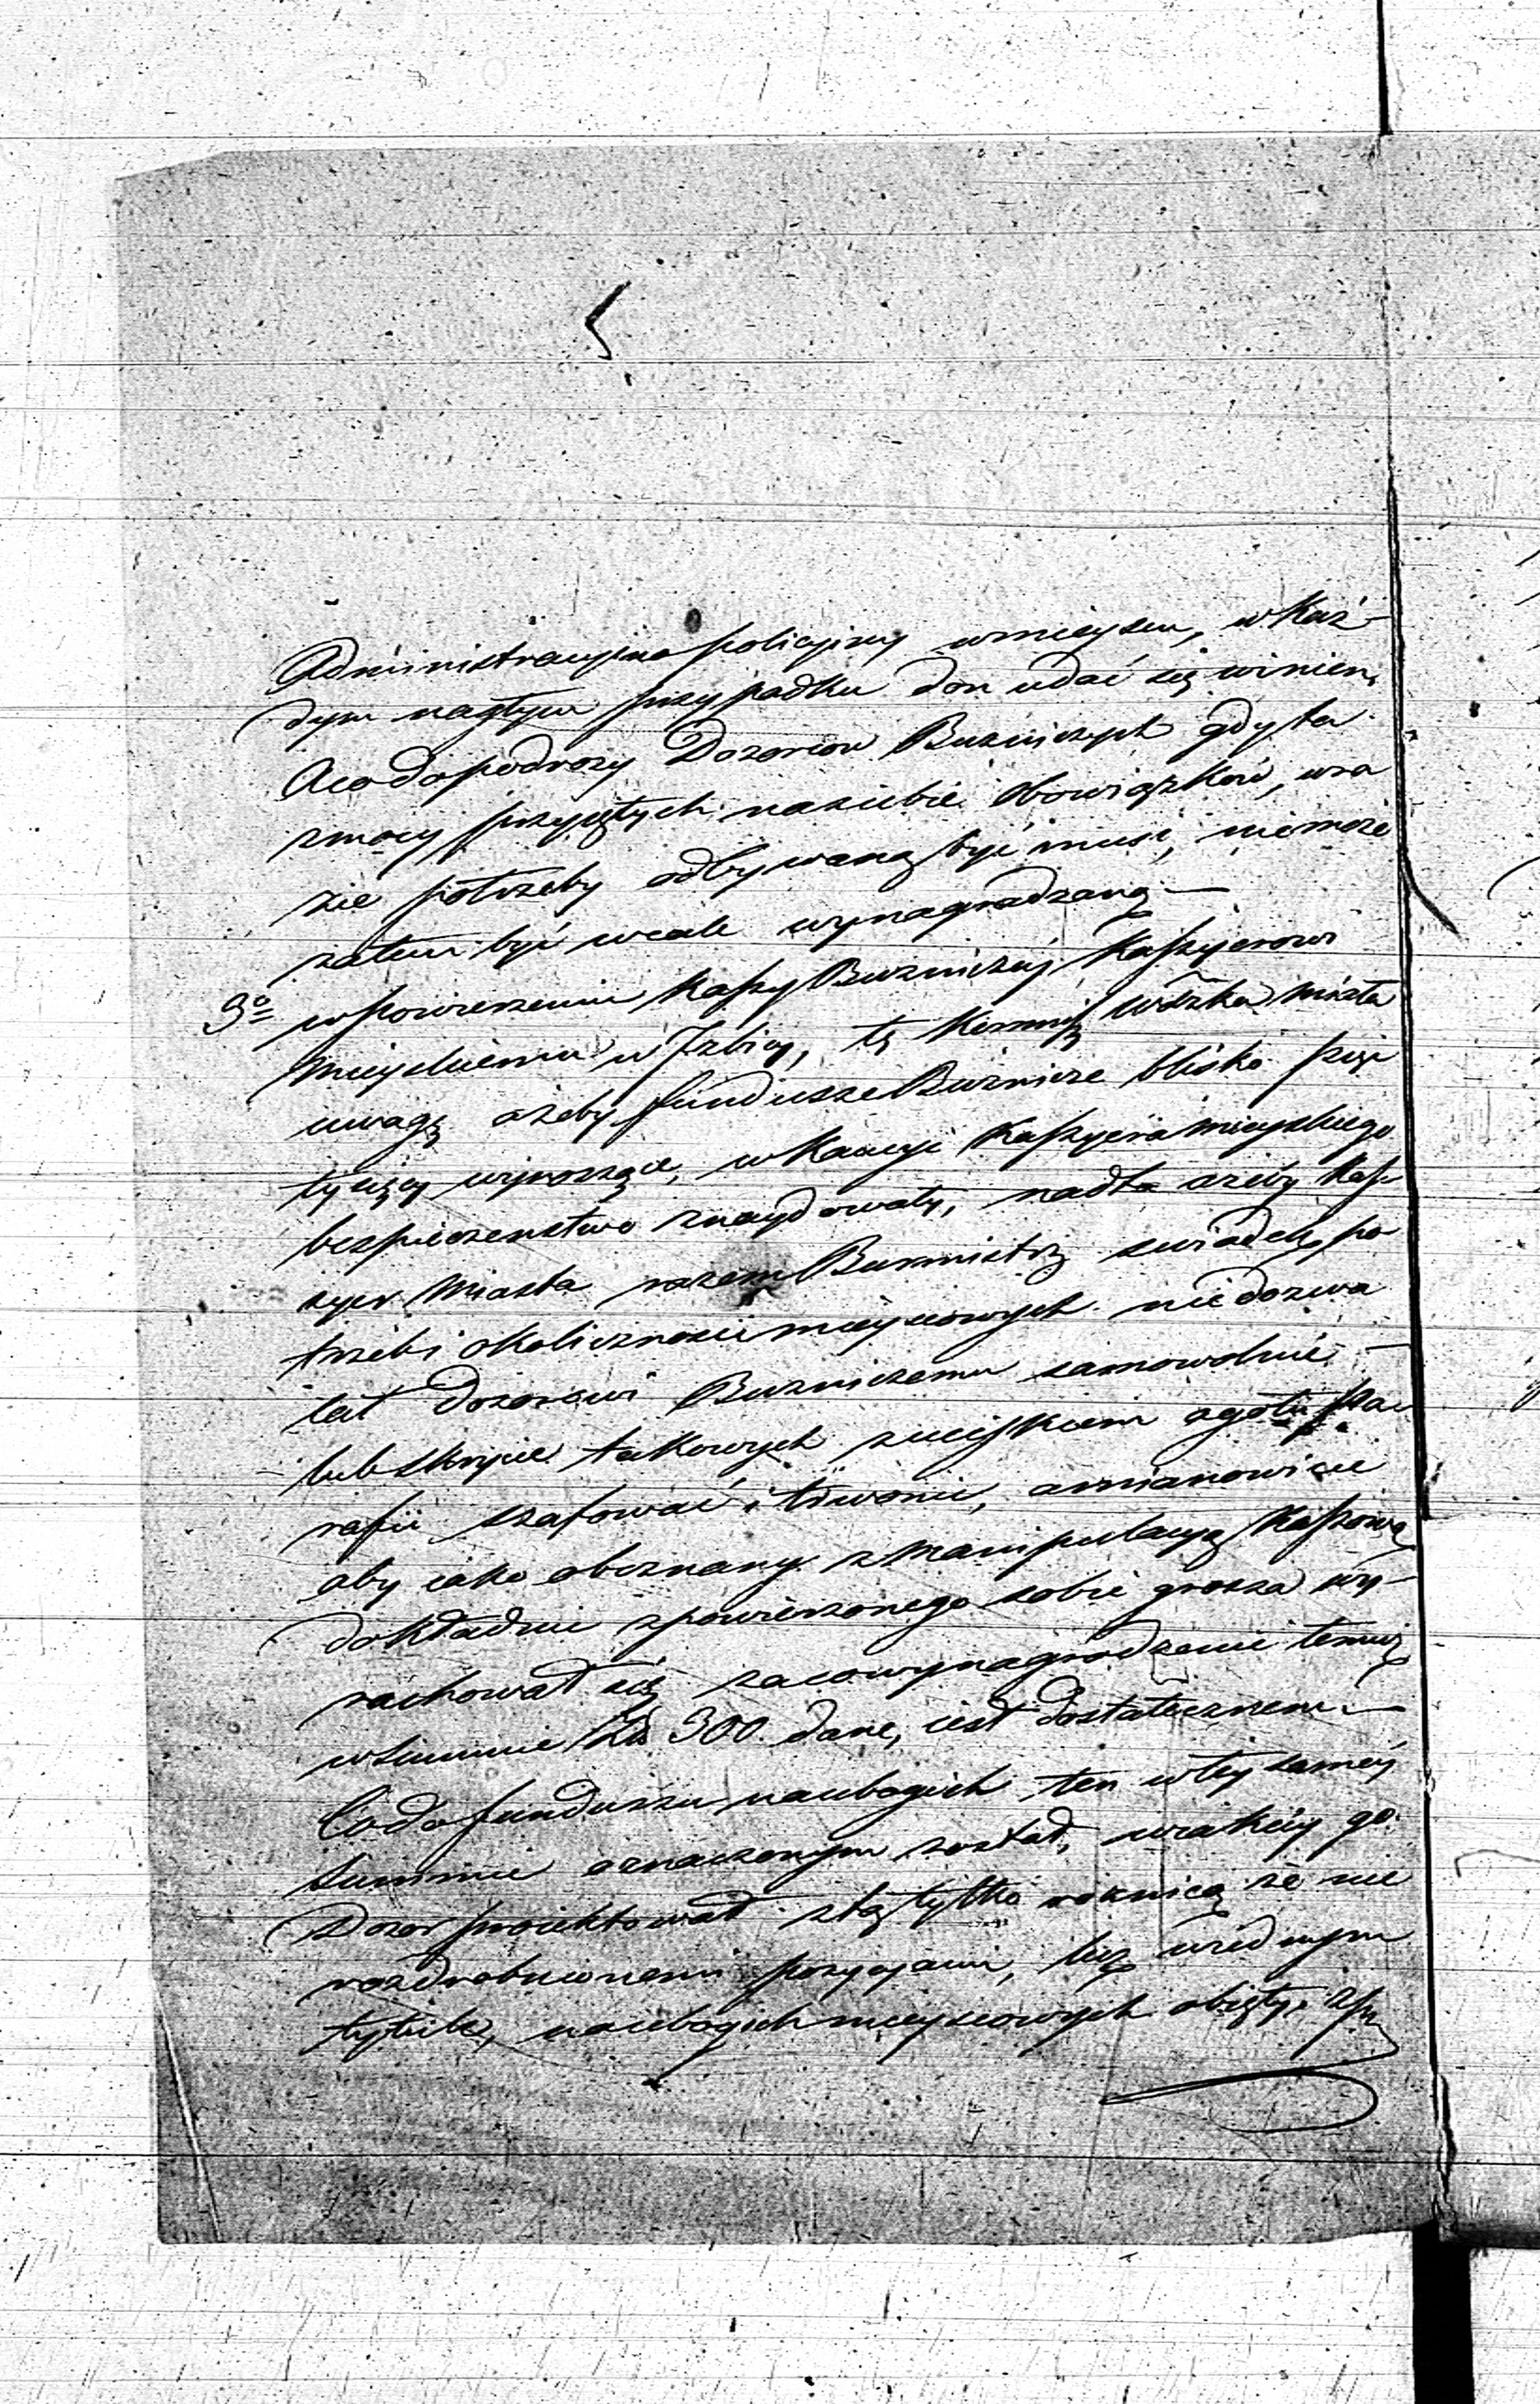 Administracyjno policyiny wmieyscu, w Każ-
dym nagłym przypadku don udać się winien,
Aco do podrozy Dozorcow Buzniczych gdy ta
zmocy przyętych nasiebie Obowiązkow, wra
zie potrzeby odbywaną być musi, niemoże
zatem być wcale wynagradzaną —
3o w powierzeniu Kassy Buzniczej Kassyerowi
Mieyskiemu w Izbicy, tę Kommis: Wdzka miała
uwagę ażeby fundusze Buznicze blisko pięć
tysięcy wynoszące, w Kaucyi Kassyera Mieyskiego
bespieczenstwo znaydowały, nadto ażeby Kas-
syer Miasta razem Burmistrz swiadek po
trzeb i okoliczności mieyscowych niedozwa
lał Dozorowi Buzniczemu samowolnie —
lub skrycie takowych zuciskiem ogółu pa-
rafii szafować i trwonić, amianowicie
aby iako obeznany z Manipulacyą Kassową
dokładnie zpowierzonego sobie grosza wy-
rachował się zacowynagrodzenie temuż
wSummie Zło 300 dane, iest dostatecznem —
Codo funduszu naubogich ten wtey samey
Summie oznaczonym został, wiakiey go
Dozor proiektował ztą tylko roznicą że nie
rozdrobnionemi pozycyami, lecz wiednym
tytule, naubogich mieyscowych obięty,